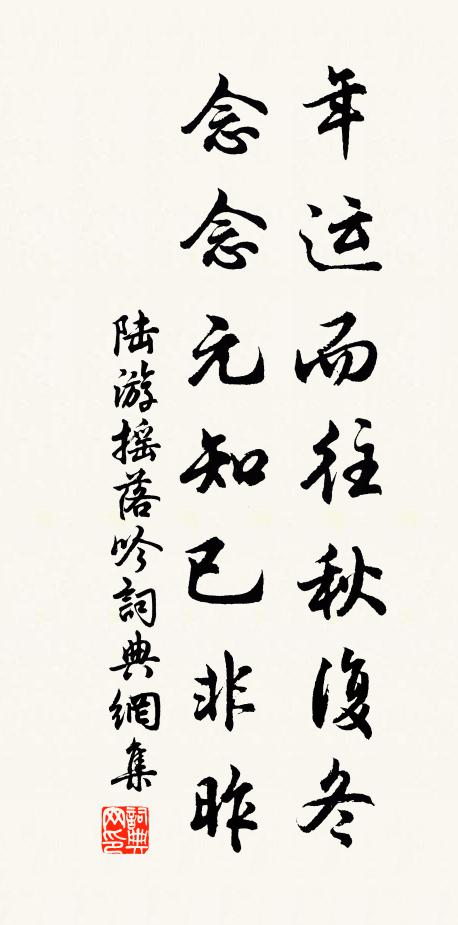 年运而往秋復冬
念念元知已非昨
陆游摇落吟詞典網集
詞典
网印